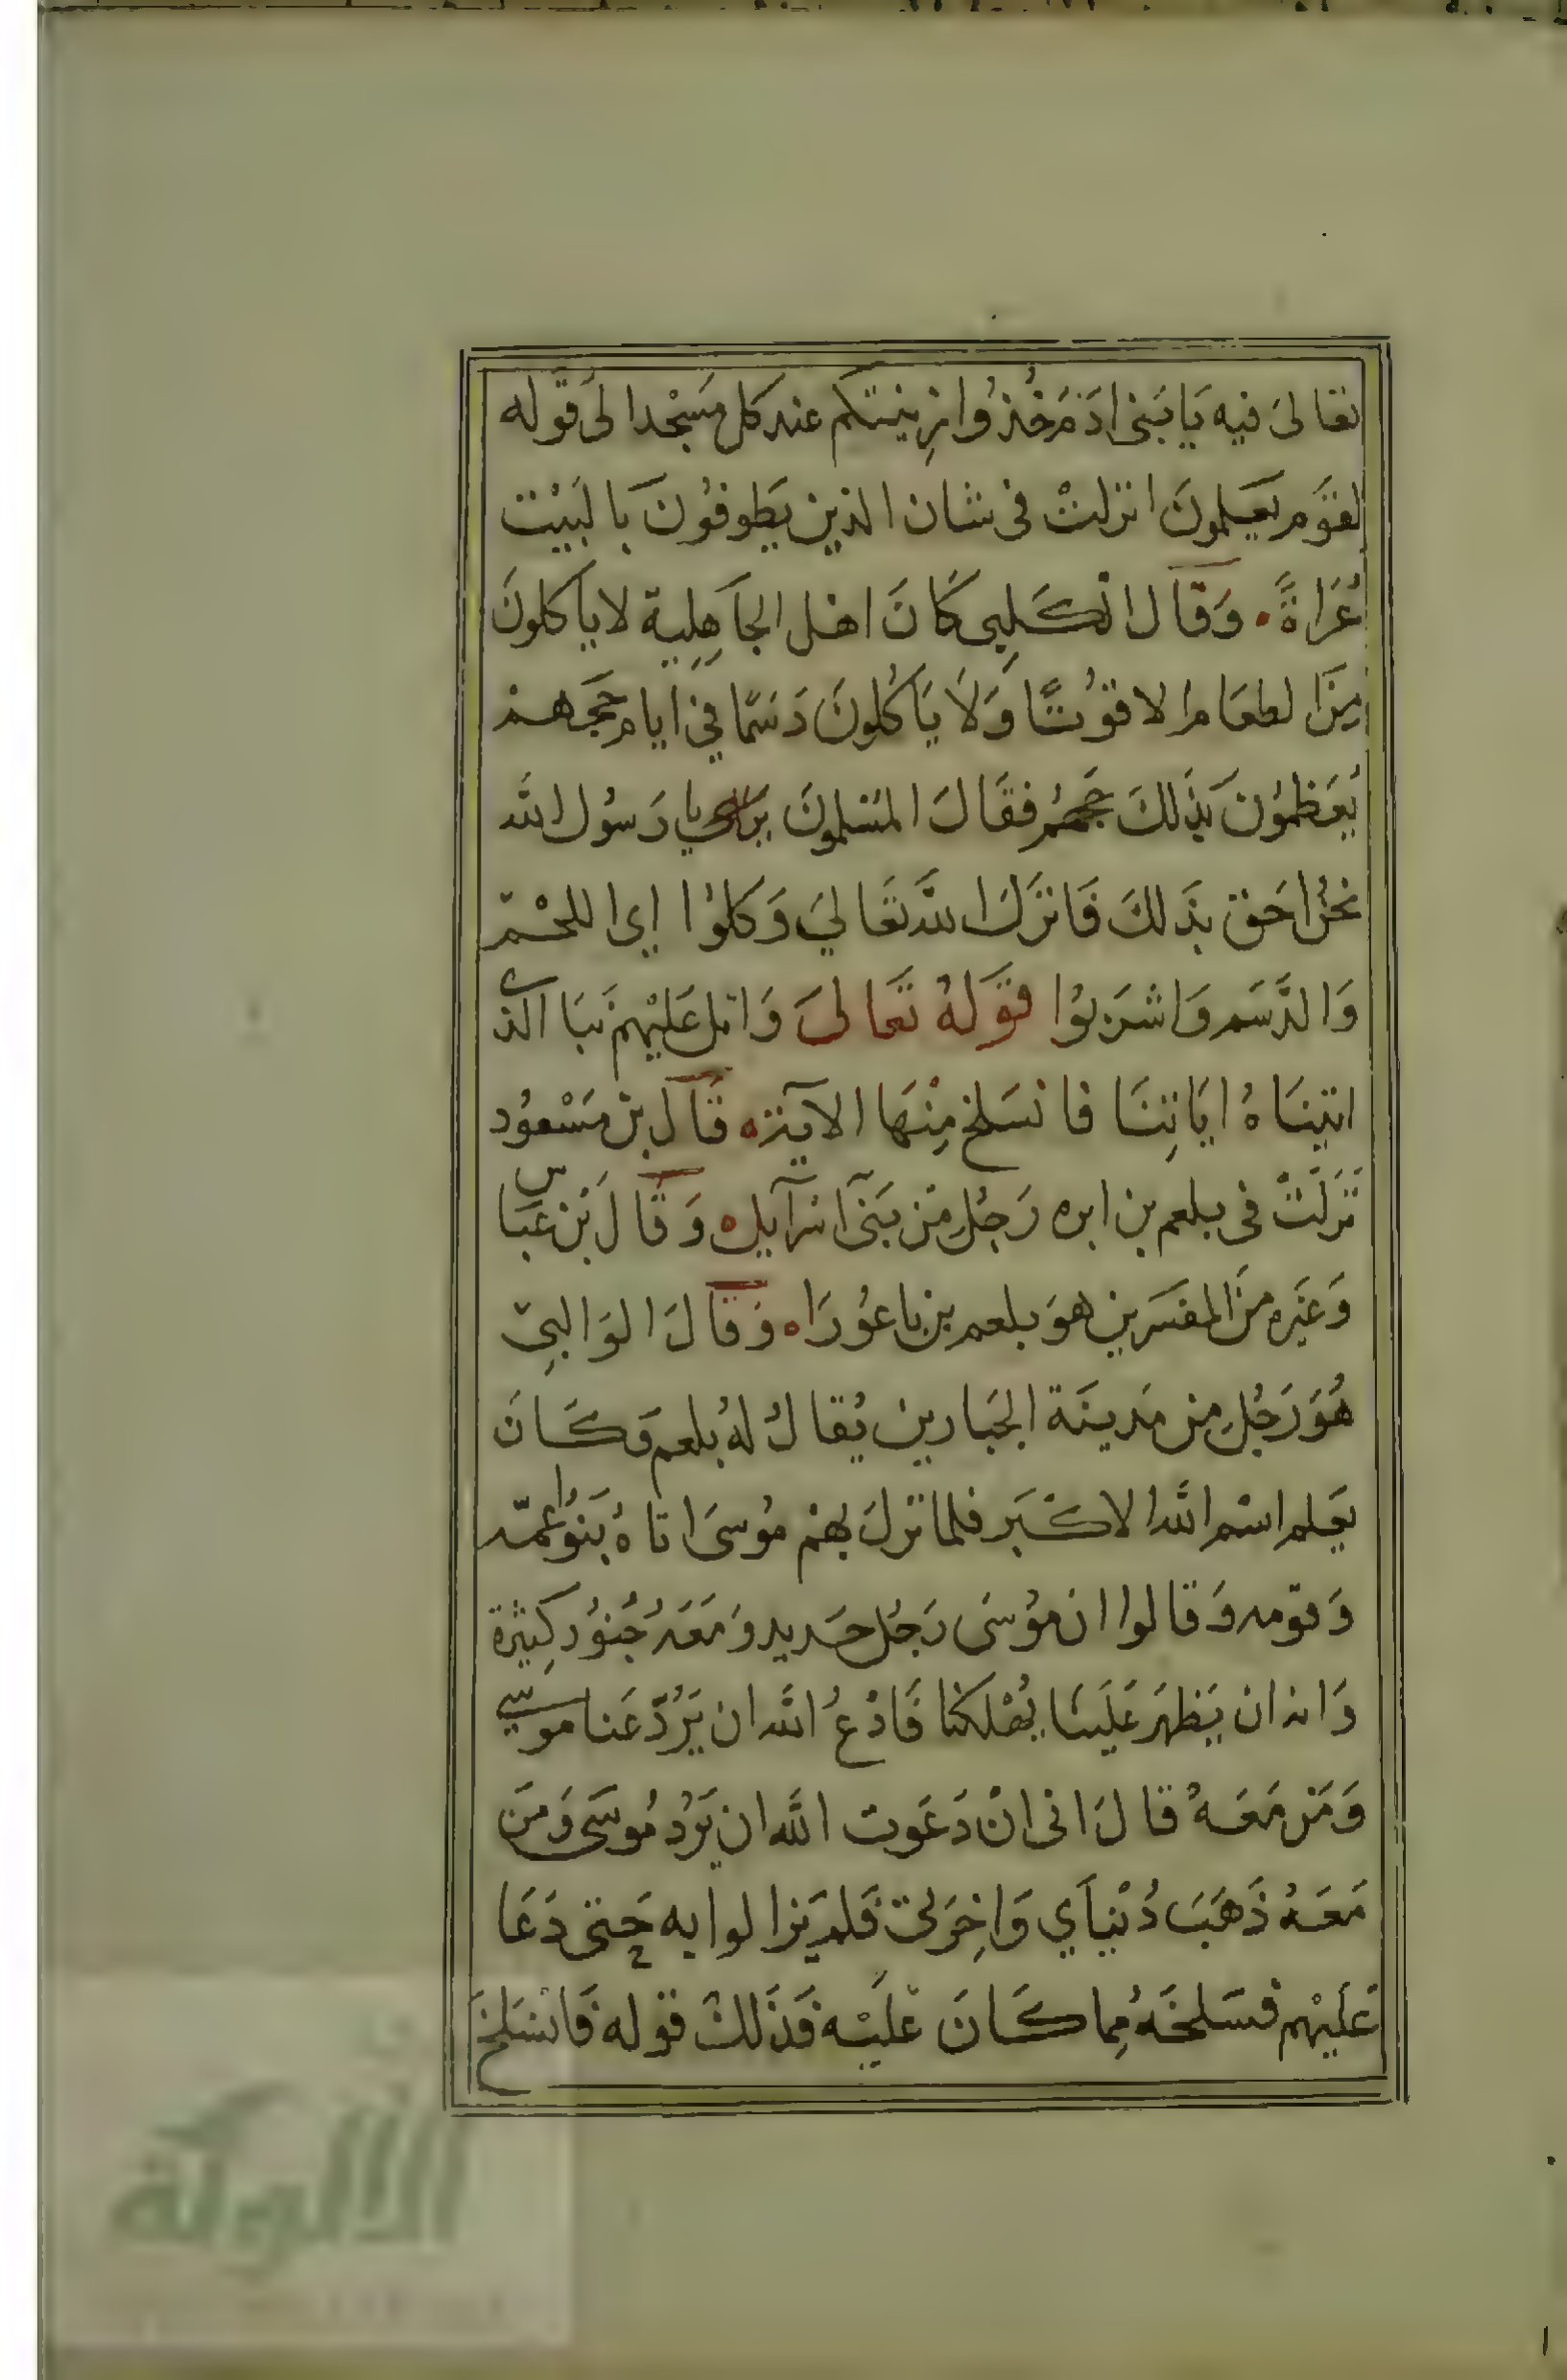 تعالى فيه يَا بَني ادَمَ خُذُوا زِينتكم عند كل مَسْجد الى قَوله
لقَوم يَعلمونَ انزلتْ في شان الذين يَطوفوُنَ بالبَيْت
عُرَاةً. وَقال الكَلبِى كَانَ اهل الجاهِلية لا ياكلونَ
مِنَ الطعَام الا قوُتًا وَلَا يَاكُلونَ دَسَمًا في ايام حَجهمْ
يُعَظمُونَ بذَلكَ حَجهُم فقَالَ المُسْلمونَ يا رَسُول الله
نحُن احَق بذَلكَ فَانزَلَ اللهُ تَعَالىَ وَكلوُا اى اللحْم
وَالدَّسَم وَاشرَبوُا قَولهُ تَعالىَ وَاتل عَليْهم نَبَا الذى
اتينَاهُ ايَاتِنَا فانسَلخ مِنْهَا الآية ه قَالَ بن مَسْعوُد
نَزَلَتْ في بلعم بن ابره رَجُلِ مَن بَنى اسرآيل ه وَقَالَ بن عَبَاس
وَغَيَره مَن المفسَرين هوَ بلعم بن باعوُرَاه وَقالَ الوَالبىِ
هُوَ رَجُل من مَدينَة الجَبارين يُقالُ لهُ بلعم وَكَانَ
يَعلم اسْم الله الاكْبَر فلما نزلَ بهمْ مُوسَى اتاهُ بَنوُا عمّه
وَقومه وَقالوا ان موُسَى رَجُل حَديد وَمَعَهُ جُنوُد كِثيَرة
وَانه ان يَظهَر عَلَينَا يُهْلكنا فَادْعُ الله ان يَرُدّ عَنا موسى
وَمَن مَعَهُ قالَ انى انْ دَعَوت الله ان يَرُد مُوسَى وَمَن
مَعَهُ ذَهَبَت دُنْيَاي وَاخِرَتي فَلم يَزالوا به حَتى دَعَا
عَليْهم فسَلخَهُ مِما كَانَ عَلَيْه فَذَلكَ قوله فَانْسَلخَ
الألوكة